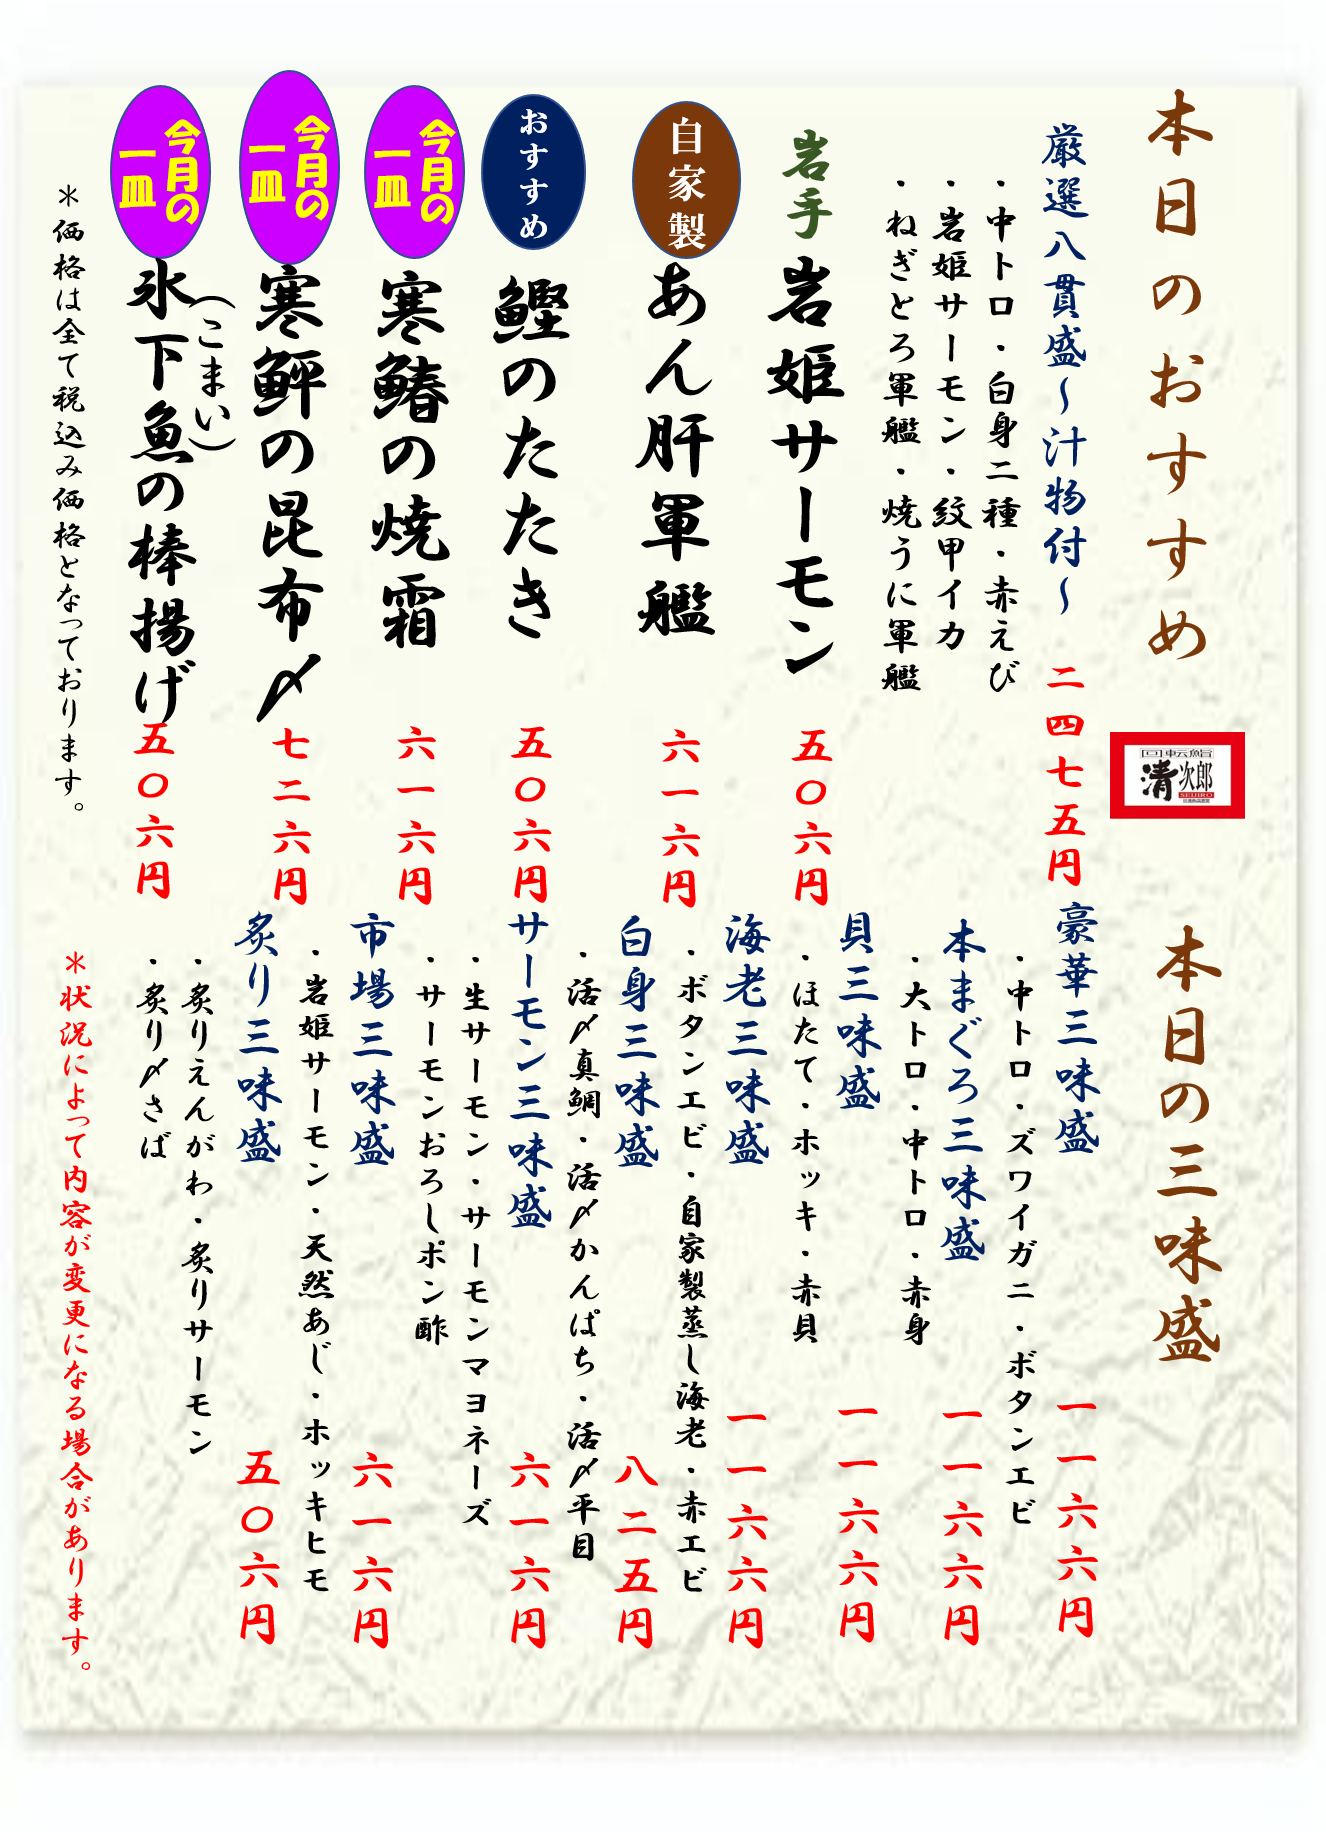 本日のおすすめ
厳選八貫盛~汁物付~ 二四七五円
・中トロ・白身二種・赤えび
・岩姫サーモン・紋甲イカ
・ねぎとろ軍艦・焼うに軍艦
岩手 岩姫サーモン 五〇六円
自家製 あん肝軍艦 六一六円
おすすめ 鰹のたたき 五〇六円
今月の一皿 寒鰆の焼霜 六一六円
今月の一皿 寒鮃の昆布〆 七二六円
(こまい)
今月の一皿 氷下魚の棒揚げ 五〇六円
*価格は全て税込み価格となっております。
回転鮨
清次郎
SEIJIRO
本日の三味盛
豪華三味盛 一一六六円
・中トロ・ズワイガニ・ボタンエビ
本まぐろ三味盛 一一六六円
・大トロ・中トロ・赤身
貝三味盛 一一六六円
・ほたて・ホッキ・赤貝
海老三味盛 一一六六円
・ボタンエビ・自家製蒸し海老・赤エビ
白身三味盛 八二五円
・活〆真鯛・活〆かんぱち・活〆平目
サーモン三味盛 六一六円
・生サーモン・サーモンマヨネーズ
・サーモンおろしポン酢
市場三味盛 六一六円
・岩姫サーモン・天然あじ・ホッキヒモ
炙り三味盛 五〇六円
・炙りえんがわ・炙りサーモン
・炙り〆さば
*状況によって内容が変更になる場合があります。